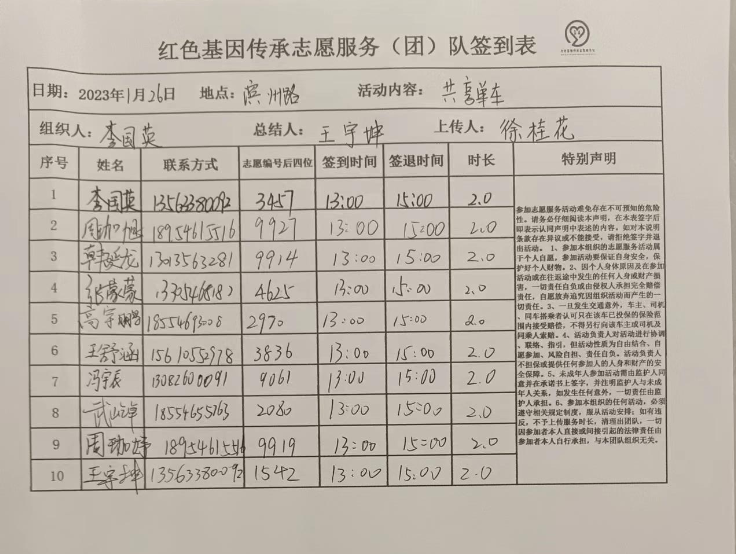 红色基因传承志愿服务（团）队签到表
日期：2023年1月26日 地点：滨州路 活动内容：共享单车
组织人：李国英 总结人：王宇坤 上传人：徐桂花
序号 姓名 联系方式 志愿编号后四位 签到时间 签退时间 时长 特别声明
1 李国英 13563380092 3457 13:00 15:00 2.0
2 周加旭 18954615516 9927 13:00 15:00 2.0
3 韩延龙 13013563281 9914 13:00 15:00 2.0
4 张蒙蒙 4625 13:00 15:00 2.0
5 高宇鹏 18554693008 2970 13:00 15:00 2.0
6 王舒涵 15610552978 3836 13:00 15:00 2.0
7 冯宇辰 13082600091 9061 13:00 15:00 2.0
8 18554655763 2080 13:00 15:00 2.0
9 周 9919 13:00 15:00 2.0
10 王宇坤 13563380092 1542 13:00 15:00 2.0
参加志愿服务活动难免存在不可预知的危险
性。请务必仔细阅读本声明，在本表签字后
即表示认同声明中表述的内容。如对本说明
条款存在异议或不能接受，请拒绝签字并退
出活动。 1、参加本组织的志愿服务活动属
于个人自愿。参加活动要保证自身安全，保
护好个人财物。2、因个人身体原因及在参加
活动或在往返途中发生的任何人身或财产损
害，一切责任自负或由侵权人承担完全赔偿
责任，自愿放弃追究因组织活动而产生的一
切责任。 3、一旦发生交通意外，车主、司机、
同车搭乘者认可只在该车已投保的保险范
围内接受赔偿，不得另行向该车主或司机及
同乘人索赔。4、活动负责人对活动进行协调
、联络、指引，但活动性质为自由结合、自
愿参加、风险自担、责任自负。活动负责人
不担保或提供任何参加人的人身和财产的安
全保障。5、未成年人参加活动需由监护人同
意并在承诺书上签字，并注明监护人与未成
年人关系，如发生任何意外，一切责任由监
护人承担。6、参加本组织的任何活动，必须
遵守相关规定制度，服从活动安排；如有违
反，不予上传服务时长，清理出团队，一切
因参加者本人直接或间接引起的法律责任由
参加者本人自行承担，与本团队组织无关。